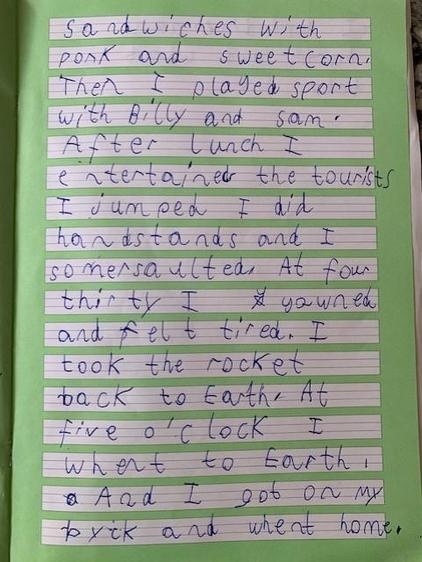 sandwiches with
ponk and sweetcorn.
Then I played sport
with Billy and sam.
After lunch I
entertained the tourists
I jumped I did
handstands and I
somersaulted. At four
thirty I yawned
and felt tired. I
took the rocket
back to Earth. At
five o'clock I
whent to Earth.
And I got on my
byik and whent home.